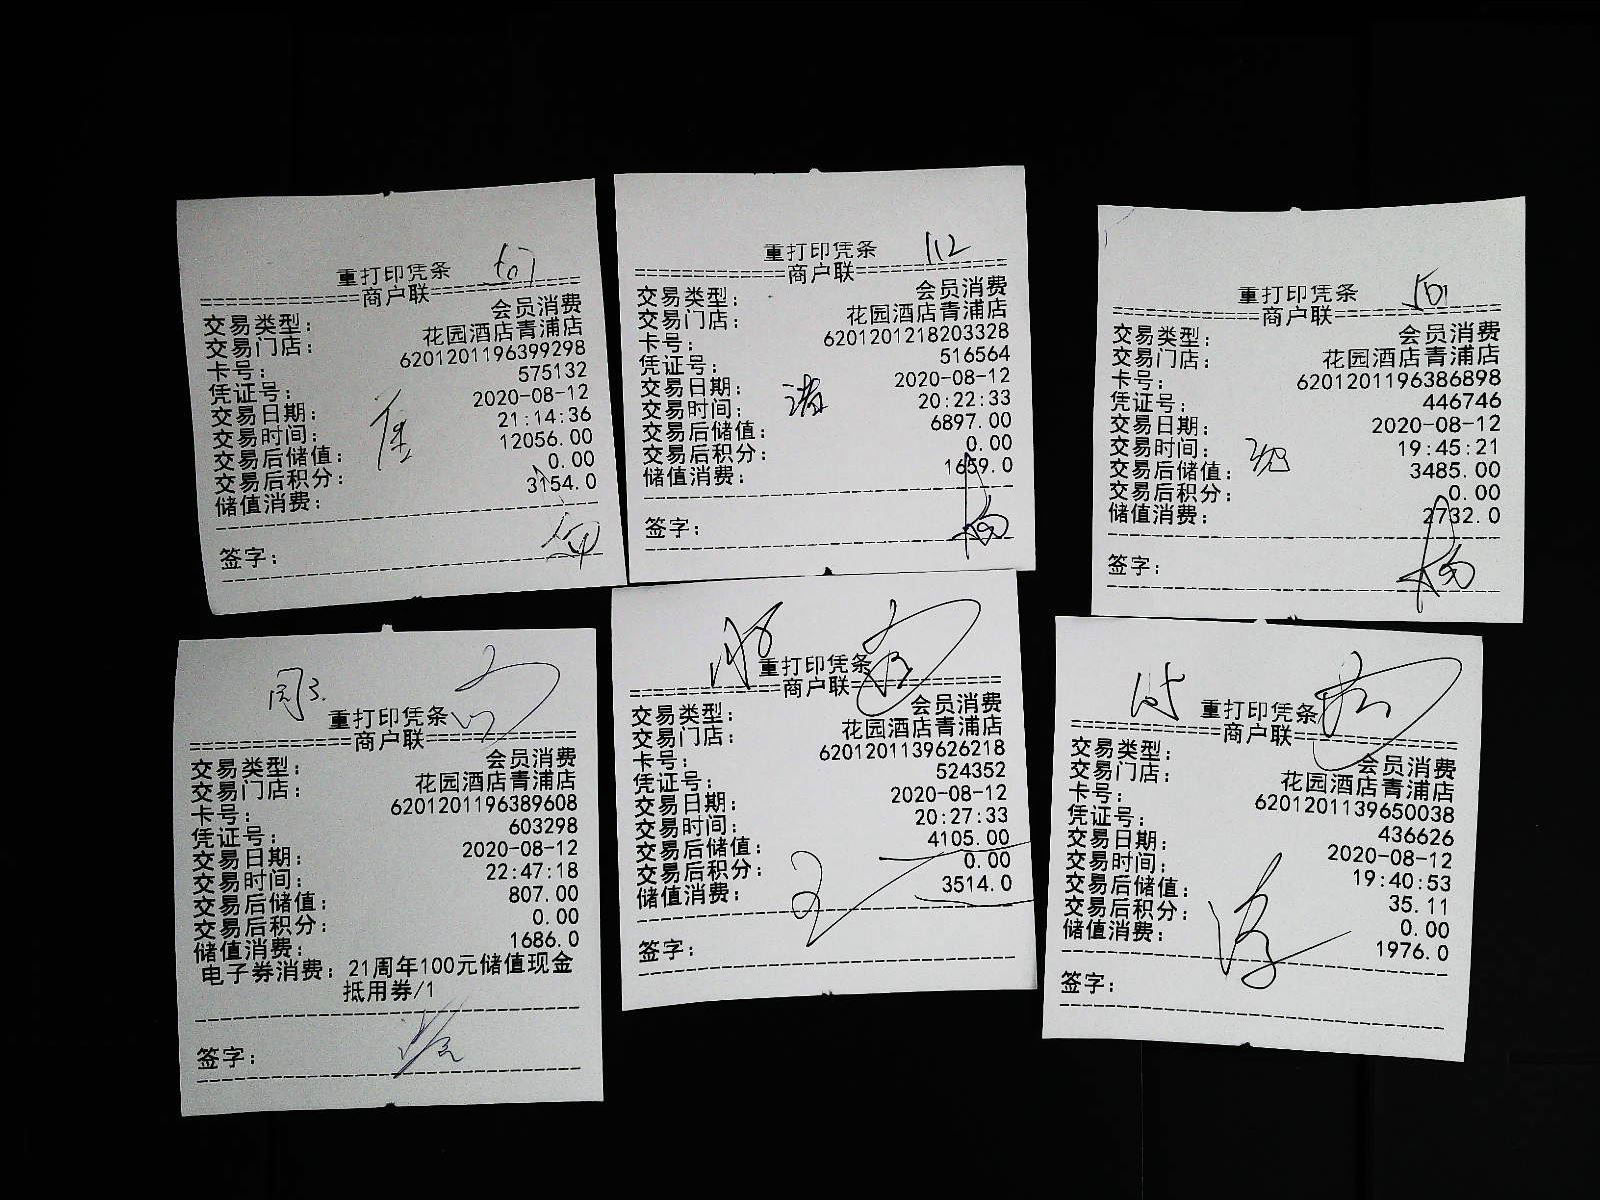 重打印凭条
================商户联================
交易类型: 会员消费
交易门店: 花园酒店青浦店
卡号: 6201201196399298
凭证号: 575132
交易日期: 2020-08-12
交易时间: 21:14:36
交易后储值: 12056.00
交易后积分: 0.00
储值消费: 3154.0
签字:
重打印凭条 112
================商户联================
交易类型: 会员消费
交易门店: 花园酒店青浦店
卡号: 6201201218203328
凭证号: 516564
交易日期: 2020-08-12
交易时间: 20:22:33
交易后储值: 6897.00
交易后积分: 0.00
储值消费: 1659.0
签字:
重打印凭条 501
================商户联================
交易类型: 会员消费
交易门店: 花园酒店青浦店
卡号: 6201201196386898
凭证号: 446746
交易日期: 2020-08-12
交易时间: 19:45:21
交易后储值: 3485.00
交易后积分: 0.00
储值消费: 2732.0
签字:
重打印凭条
================商户联================
交易类型: 会员消费
交易门店: 花园酒店青浦店
卡号: 6201201196389608
凭证号: 603298
交易日期: 2020-08-12
交易时间: 22:47:18
交易后储值: 807.00
交易后积分: 0.00
储值消费: 1686.0
电子券消费: 21周年100元储值现金
抵用券/1
签字:
重打印凭条
================商户联================
交易类型: 会员消费
交易门店: 花园酒店青浦店
卡号: 6201201139626218
凭证号: 524352
交易日期: 2020-08-12
交易时间: 20:27:33
交易后储值: 4105.00
交易后积分: 0.00
储值消费: 3514.0
签字:
重打印凭条
================商户联================
交易类型: 会员消费
交易门店: 花园酒店青浦店
卡号: 6201201139650038
凭证号: 436626
交易日期: 2020-08-12
交易时间: 19:40:53
交易后储值: 35.11
交易后积分: 0.00
储值消费: 1976.0
签字: